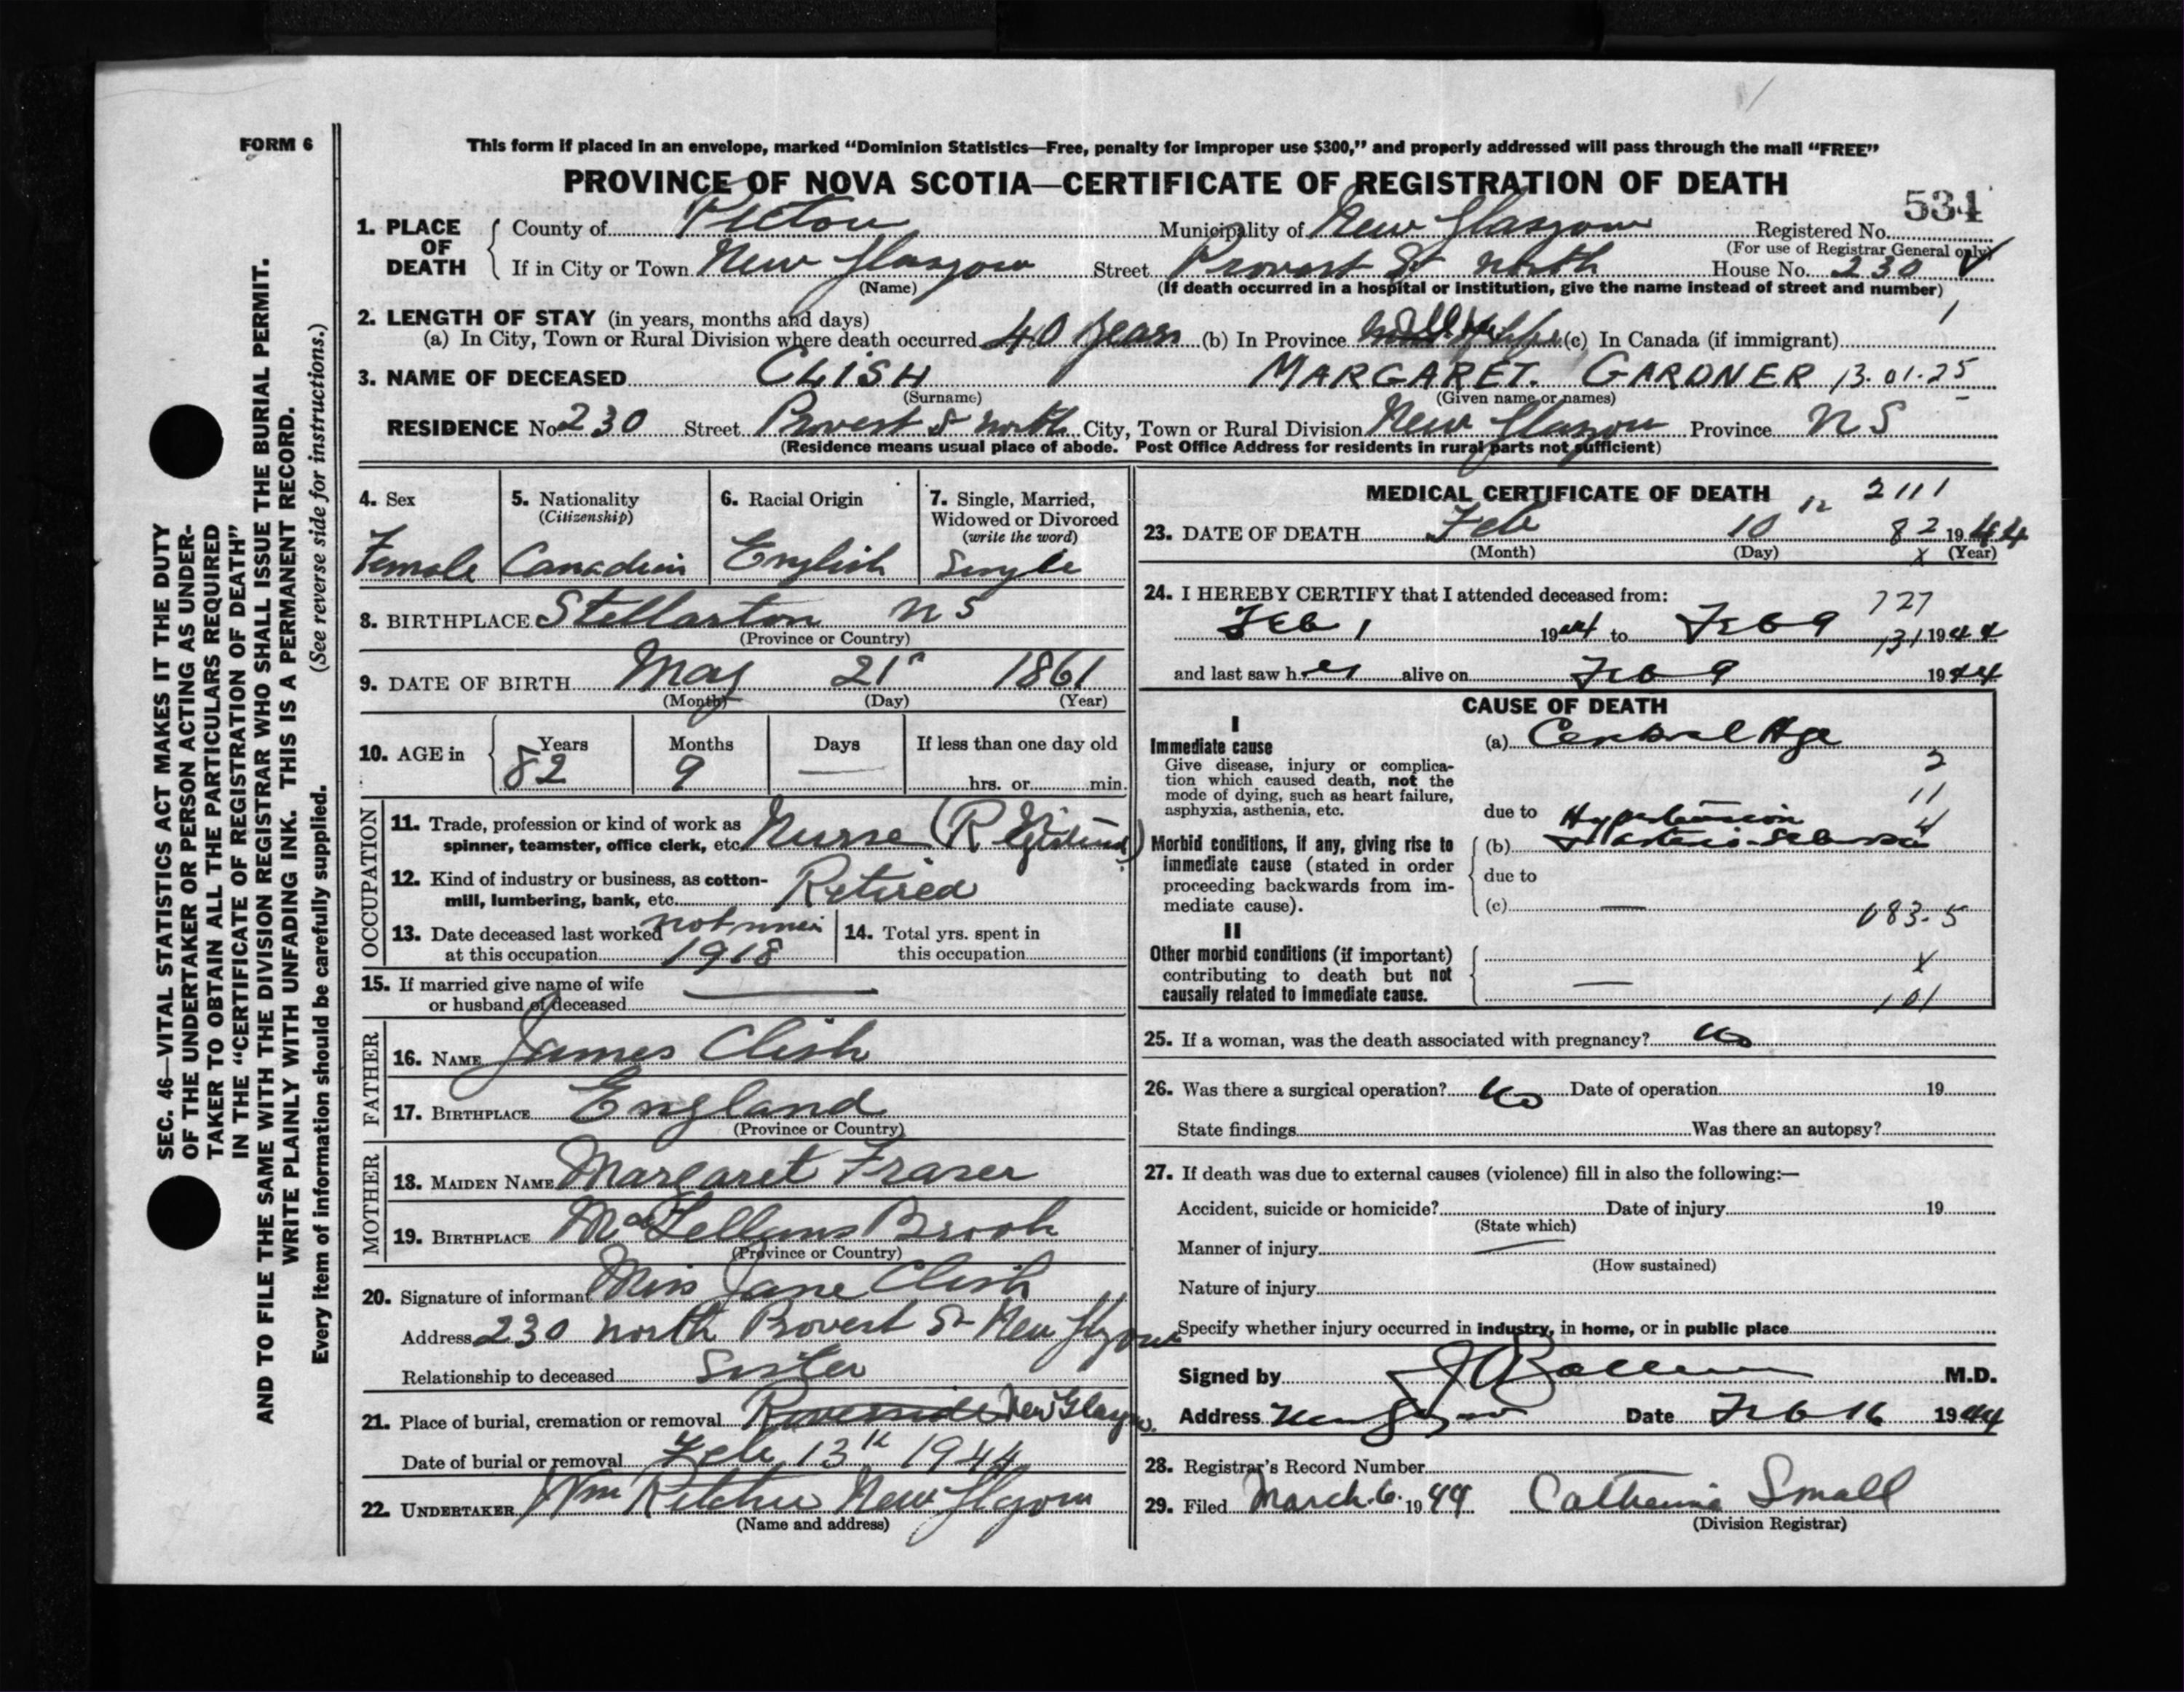 FORM 6
This form if placed in an envelope, marked “Dominion Statistics—Free, penalty for improper use $300,” and properly addressed will pass through the mail “FREE”
PROVINCE OF NOVA SCOTIA—CERTIFICATE OF REGISTRATION OF DEATH
534
1. PLACE OF DEATH
County of Pictou Municipality of New Glasgow Registered No.
(For use of Registrar General only)
If in City or Town New Glasgow Street Provost St North House No. 230
(Name) (If death occurred in a hospital or institution, give the name instead of street and number)
2. LENGTH OF STAY (in years, months and days) 1
(a) In City, Town or Rural Division where death occurred 40 years (b) In Province All Life (c) In Canada (if immigrant)
3. NAME OF DECEASED CLISH MARGARET. GARDNER 13.01.25
(Surname) (Given name or names)
RESIDENCE No. 230 Street Provost St North City, Town or Rural Division New Glasgow Province N S
(Residence means usual place of abode. Post Office Address for residents in rural parts not sufficient)
4. Sex Female
5. Nationality (Citizenship) Canadian
6. Racial Origin English
7. Single, Married, Widowed or Divorced (write the word) Single
8. BIRTHPLACE Stellarton N S
(Province or Country)
9. DATE OF BIRTH May 21st 1861
(Month) (Day) (Year)
10. AGE in Years 82 Months 9 Days — If less than one day old hrs. or min.
OCCUPATION
11. Trade, profession or kind of work as
spinner, teamster, office clerk, etc. Nurse (Registered)
12. Kind of industry or business, as cotton-
mill, lumbering, bank, etc. Retired
13. Date deceased last worked not since
at this occupation 1918
14. Total yrs. spent in
this occupation
15. If married give name of wife
or husband of deceased —
FATHER
16. NAME James Clish
17. BIRTHPLACE England
(Province or Country)
MOTHER
18. MAIDEN NAME Margaret Fraser
19. BIRTHPLACE McLellans Brook
(Province or Country)
20. Signature of informant Miss Jane Clish
Address 230 North Provost St New Glasgow
Relationship to deceased Sister
21. Place of burial, cremation or removal Riverside New Glasgow.
Date of burial or removal Feb 13th 1944
22. UNDERTAKER Wm Ritchie New Glasgow
(Name and address)
MEDICAL CERTIFICATE OF DEATH 2111
23. DATE OF DEATH Feb 10th 82 1944
(Month) (Day) x (Year)
24. I HEREBY CERTIFY that I attended deceased from: 727
Feb 1 1944 to Feb 9 131 1944
and last saw her alive on Feb 9 1944
CAUSE OF DEATH
I
Immediate cause
Give disease, injury or complica-
tion which caused death, not the
mode of dying, such as heart failure,
asphyxia, asthenia, etc.
(a) Cerebral Hge
2
11
4
due to Hypertension
Morbid conditions, if any, giving rise to
immediate cause (stated in order
proceeding backwards from im-
mediate cause).
(b) + Arterio-Sclerosis
due to
(c) — 083.5
II
Other morbid conditions (if important)
contributing to death but not
causally related to immediate cause.
—
x
101
25. If a woman, was the death associated with pregnancy? No
26. Was there a surgical operation? No Date of operation 19
State findings Was there an autopsy?
27. If death was due to external causes (violence) fill in also the following:—
Accident, suicide or homicide? Date of injury 19
(State which)
Manner of injury —
(How sustained)
Nature of injury
Specify whether injury occurred in industry, in home, or in public place
Signed by M.D.
Address New Glasgow Date Feb 16 1944
28. Registrar’s Record Number
29. Filed March. 6. 1944 Catherine Small
(Division Registrar)
SEC. 46—VITAL STATISTICS ACT MAKES IT THE DUTY
OF THE UNDERTAKER OR PERSON ACTING AS UNDER-
TAKER TO OBTAIN ALL THE PARTICULARS REQUIRED
IN THE “CERTIFICATE OF REGISTRATION OF DEATH”
AND TO FILE THE SAME WITH THE DIVISION REGISTRAR WHO SHALL ISSUE THE BURIAL PERMIT.
WRITE PLAINLY WITH UNFADING INK. THIS IS A PERMANENT RECORD.
Every item of information should be carefully supplied. (See reverse side for instructions.)